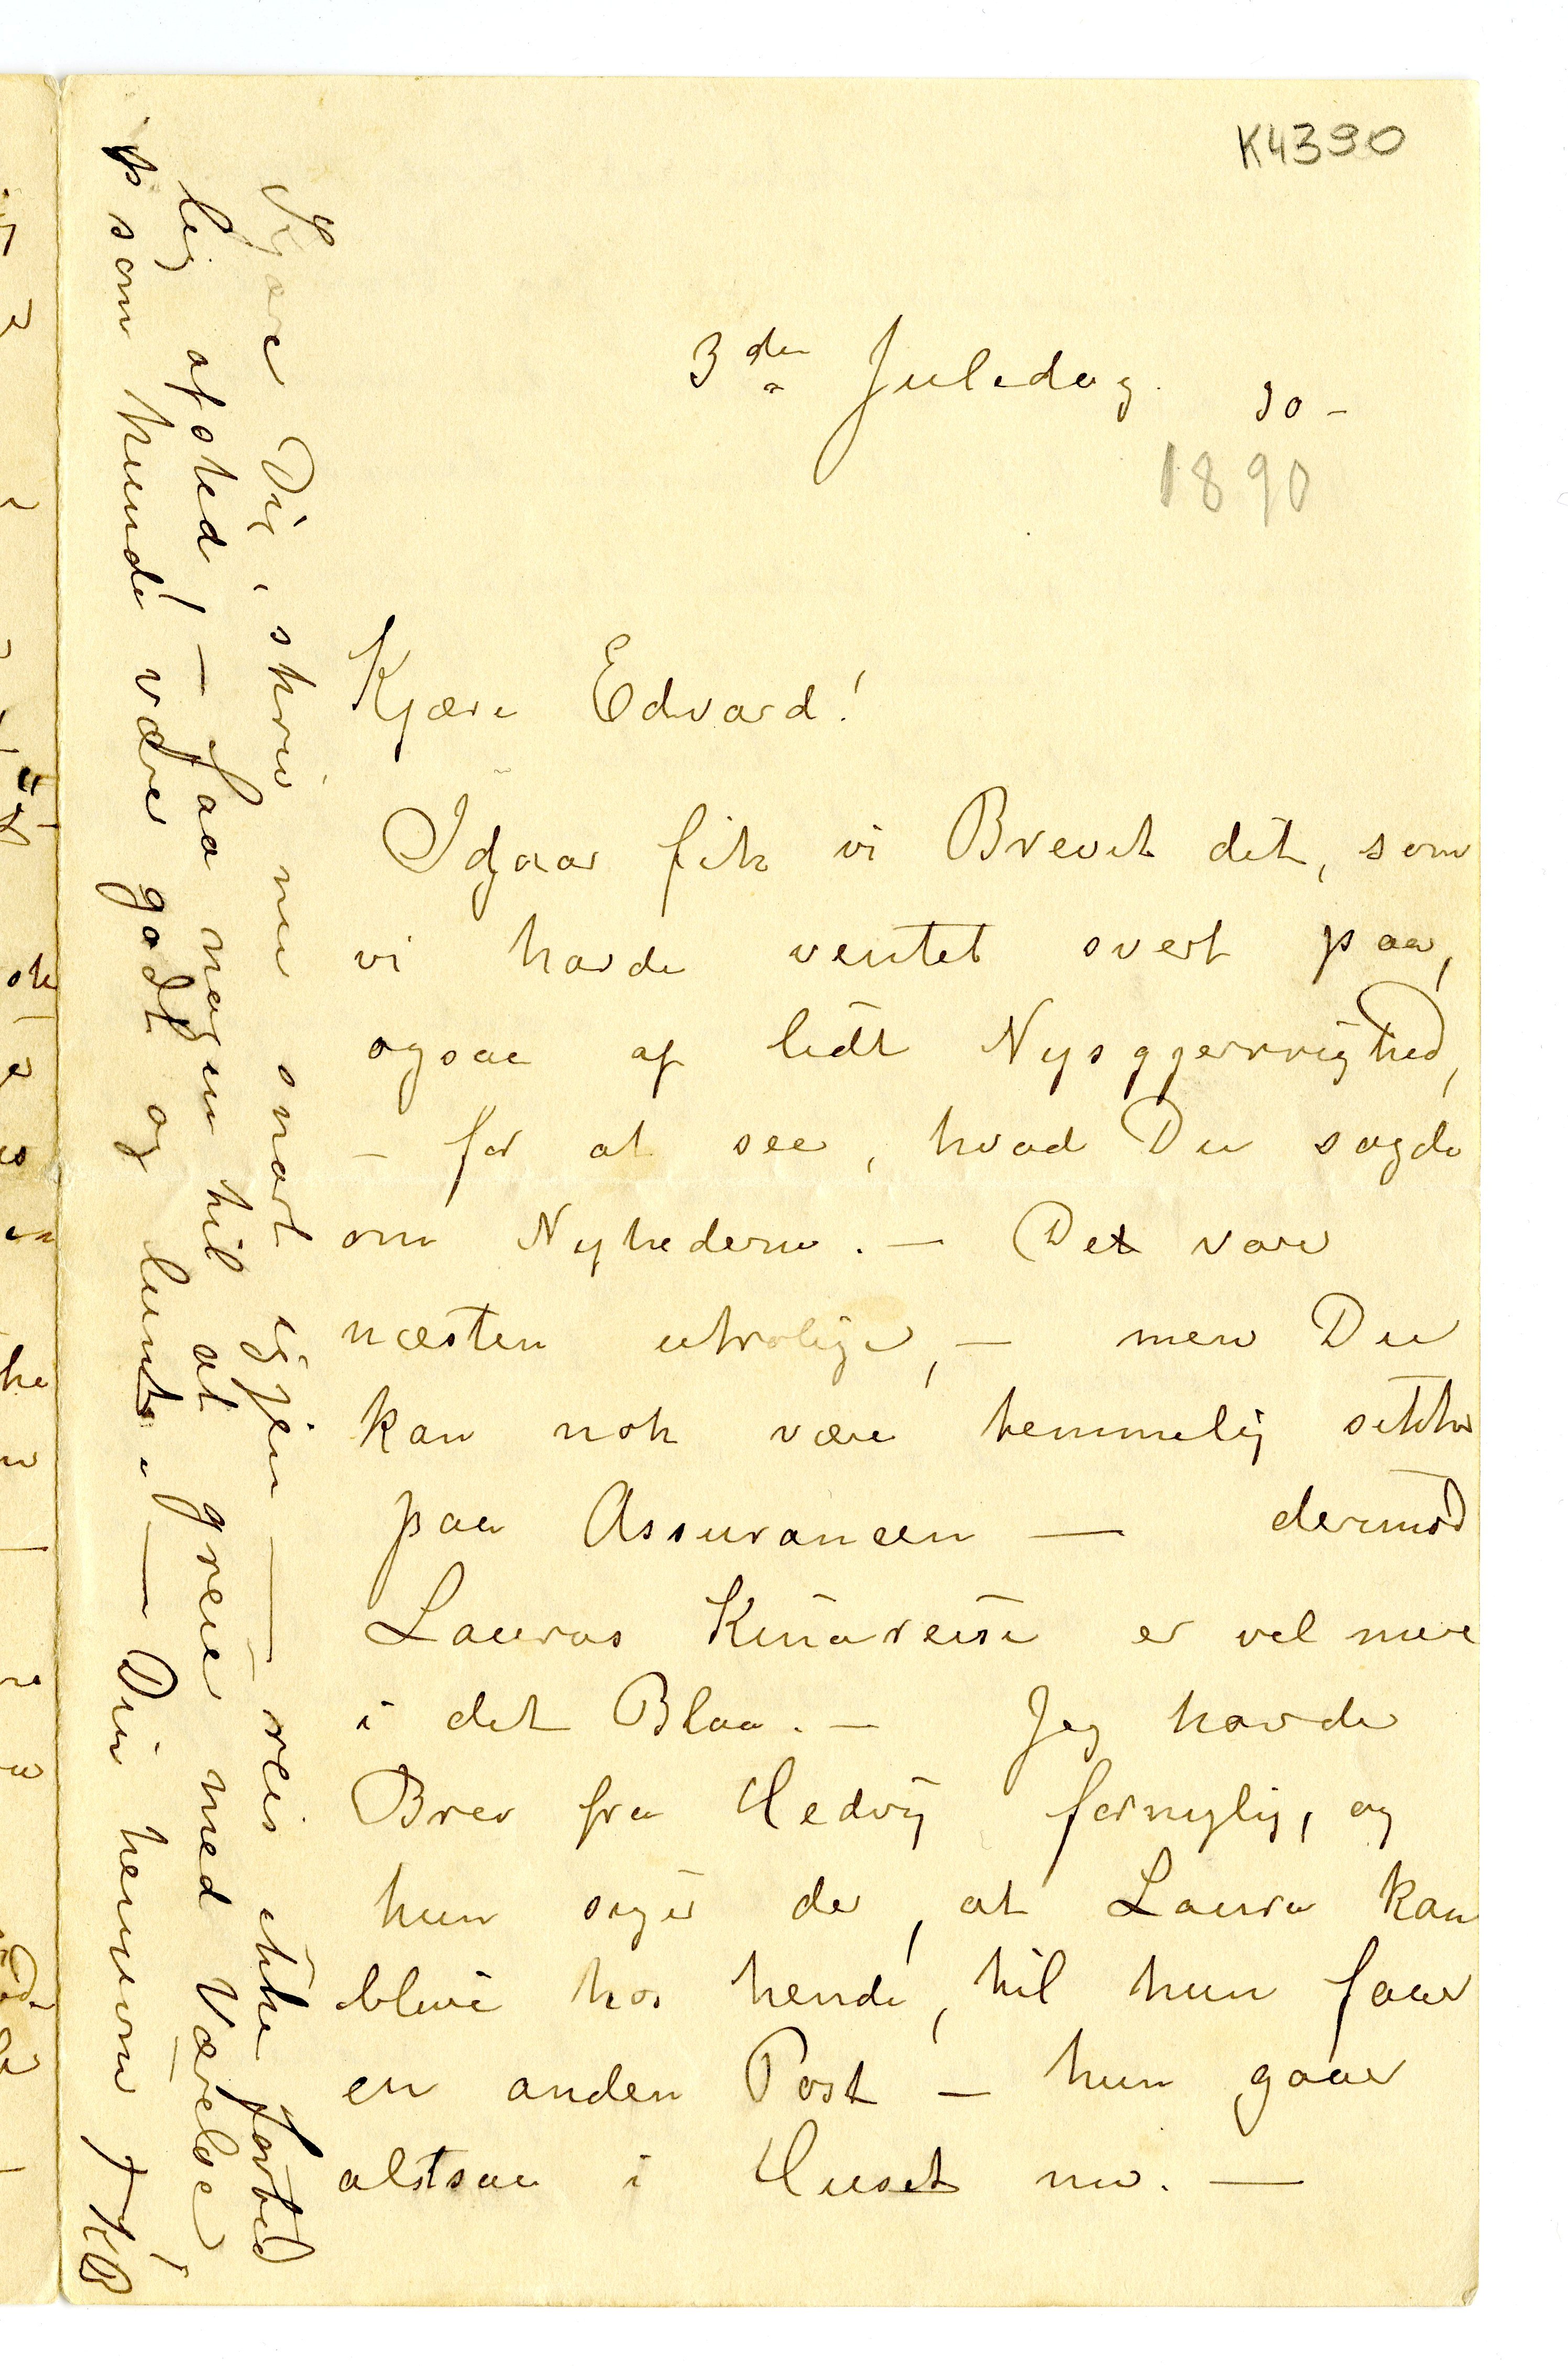 K4390
3die Juledag 90 –
1890
Kjære Edvard!
Idgaar fik vi Brevet dit, som
vi havde ventet svert paa,
ogsaa af lidt Nysggjerrighed,
– for at see, hvad Du sagde
om Nyhederne. – Det vare
næsten utrolige, – men Du
kan nok være temmelig sikker
paa Assurancen — derimod
Lauras Kinareise er vel mere
i det Blaa. – Jeg havde
Brev fra Hedvig fornylig, og
hun siger der, at Laura kan
blive hos hende, til hun faar
en anden Post – hun gaar
altsaa i Huset nu. —
Kjære Dig, skriv nu snart igjen — reis ikke forbid
lig afsted! – Faa nogen til at greie med Værelse
ts som kunde være godt og lunt. — Din hengivne J KB